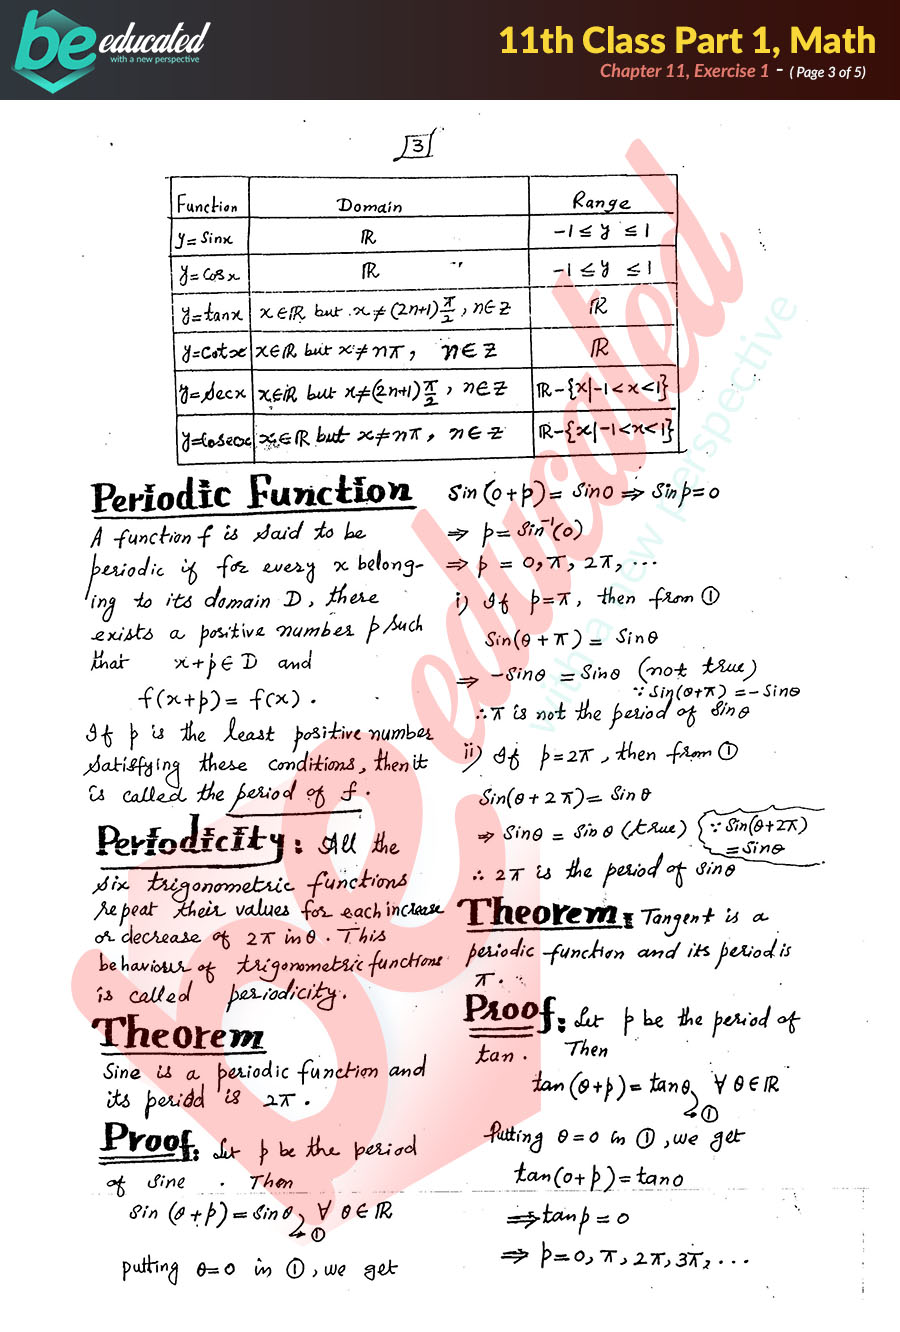 be educated
with a new perspective
11th Class Part 1, Math
Chapter 11, Exercise 1 - ( Page 3 of 5)
3
Function Domain Range
y=Sinx ℝ -1 ≤ y ≤ 1
y=Cosx ℝ -1 ≤ y ≤ 1
y=tanx x∈ℝ but x≠(2n+1)π/2, n∈Z ℝ
y=Cotx x∈ℝ but x≠nπ, n∈Z ℝ
y=Secx x∈ℝ but x≠(2n+1)π/2, n∈Z ℝ-{x|-1<x<1}
y=Cosecx x∈ℝ but x≠nπ, n∈Z ℝ-{x|-1<x<1}
Periodic Function
A function f is said to be
periodic if for every x belong-
ing to its domain D, there
exists a positive number p such
that x+p∈D and
f(x+p)= f(x).
If p is the least positive number
satisfying these conditions, then it
is called the period of f.
Periodicity: All the
six trigonometric functions
repeat their values for each increase
or decrease of 2π in θ. This
behaviour of trigonometric functions
is called periodicity.
Theorem
Sine is a periodic function and
its period is 2π.
Proof: Let p be the period
of sine. Then
Sin (θ+p)=Sinθ, ∀ θ∈ℝ
→①
putting θ=0 in ①, we get
Sin(0+p)= Sin0 ⇒ Sinp=0
⇒ p= Sin⁻¹(0)
⇒ p = 0, π, 2π, ...
i) If p=π, then from ①
Sin(θ+π)= Sinθ
⇒ -Sinθ = Sinθ (not true)
∵ Sin(θ+π) = -Sinθ
∴ π is not the period of Sinθ
ii) If p=2π, then from ①
Sin(θ+2π)= Sinθ
⇒ Sinθ = Sinθ (true) ∵ Sin(θ+2π)
=Sinθ
∴ 2π is the period of Sinθ
Theorem: Tangent is a
periodic function and its period is
π.
Proof: Let p be the period of
tan. Then
tan(θ+p)= tanθ, ∀ θ∈ℝ
→①
Putting θ=0 in ①, we get
tan(0+p)=tan0
⇒tanp=0
⇒ p=0, π, 2π, 3π, ...
be educated
with a new perspective